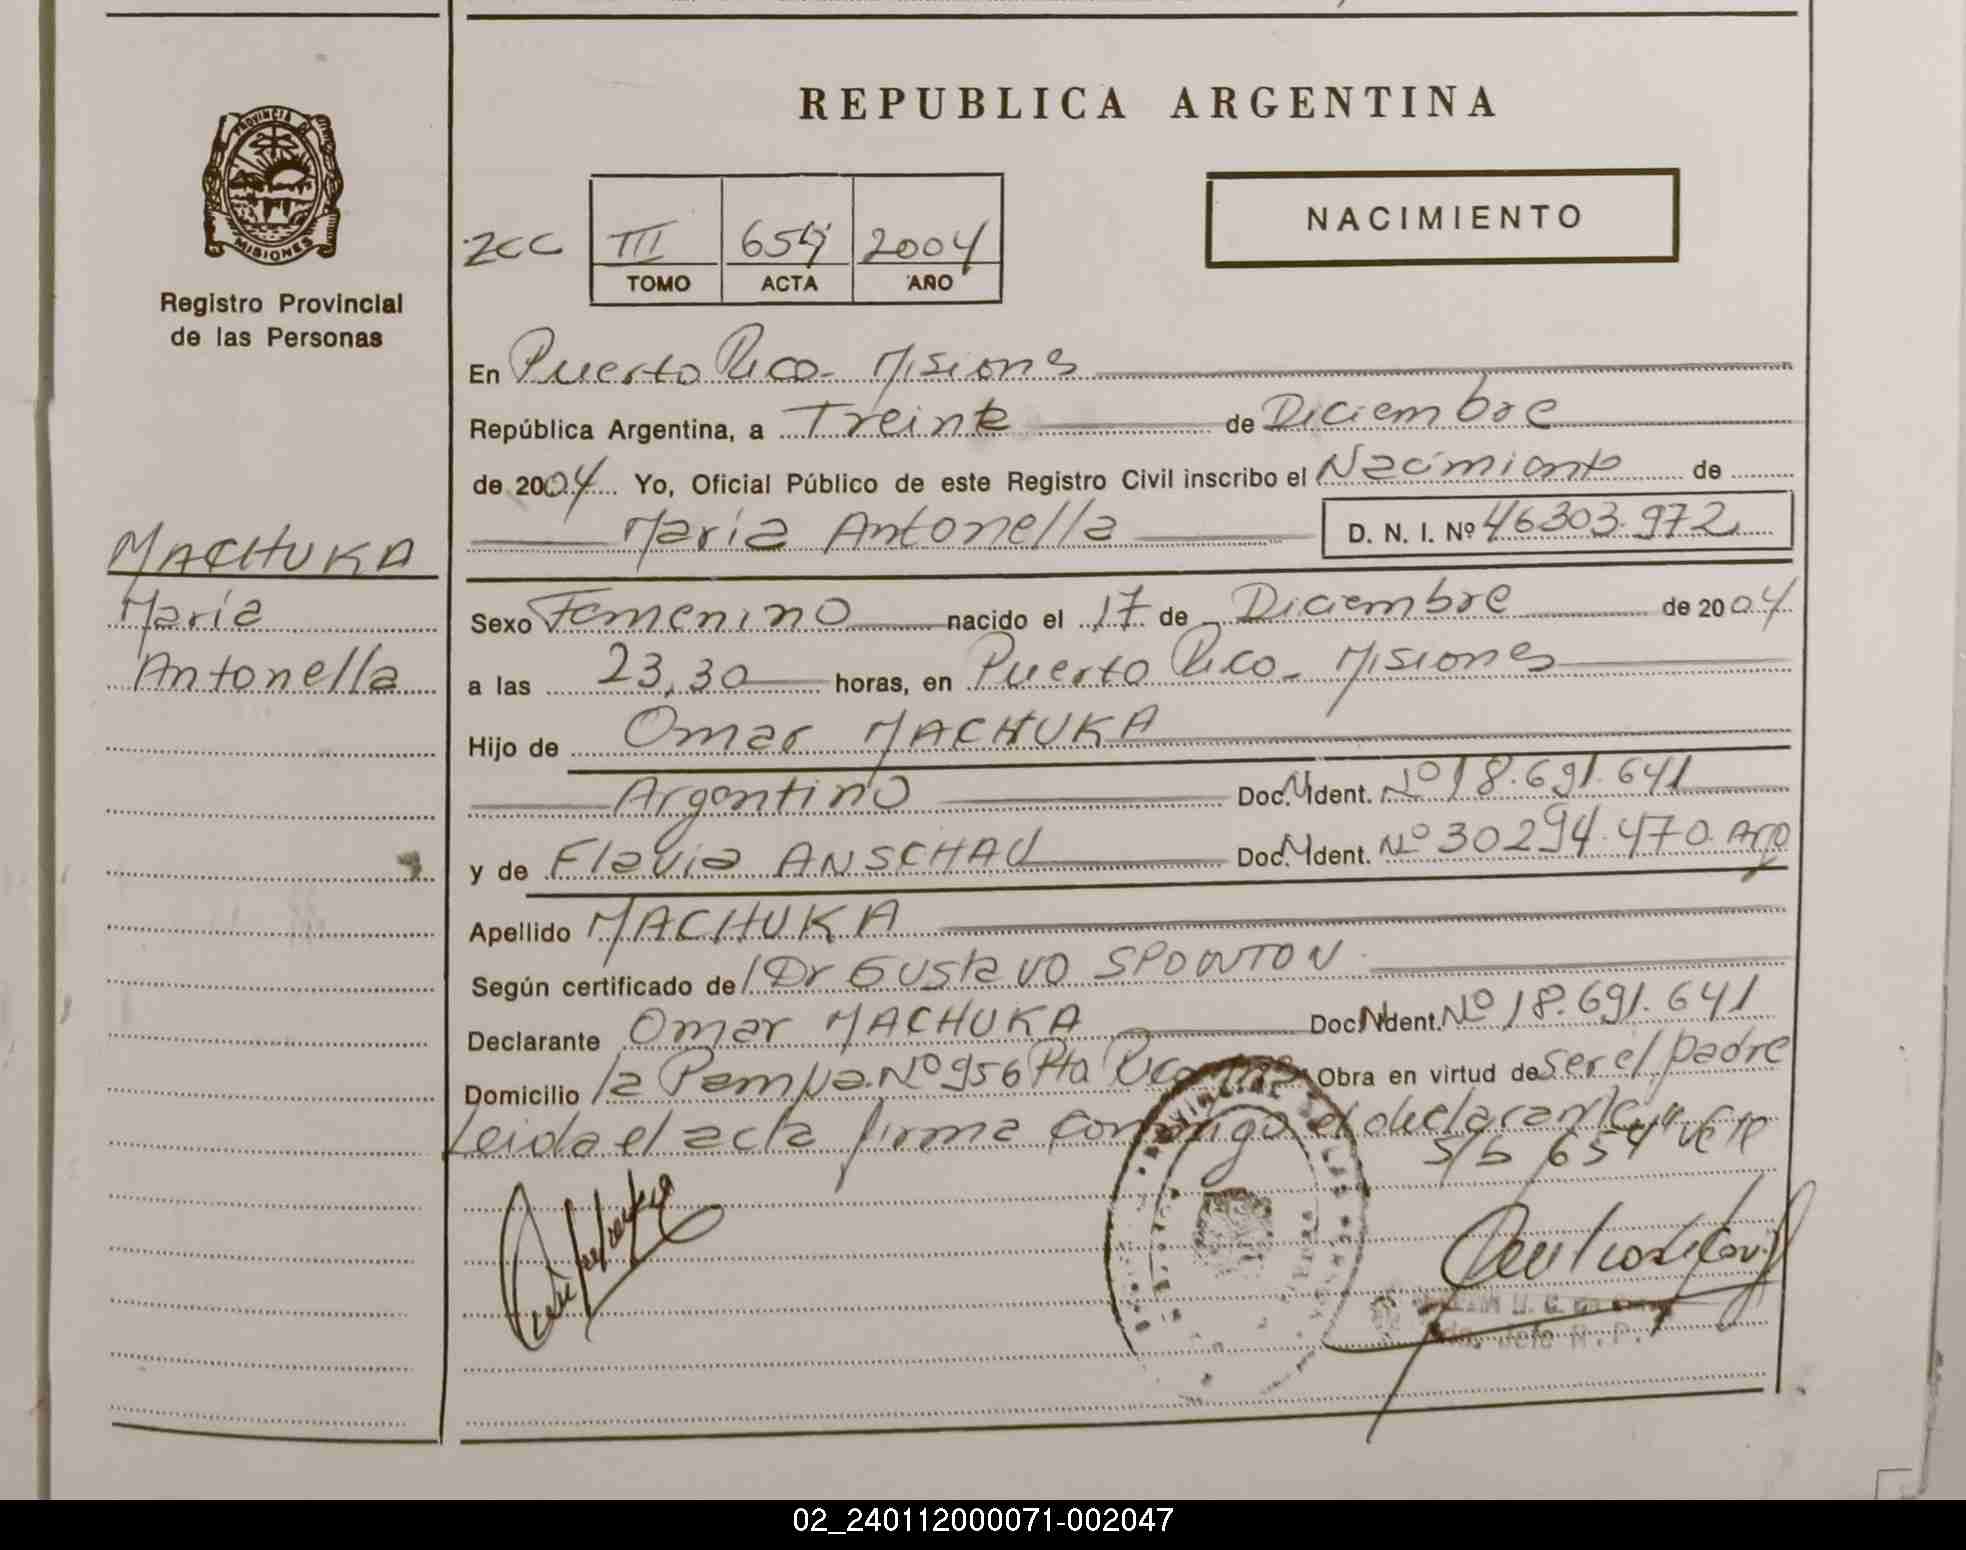 REPUBLICA ARGENTINA
PROVINCIA DE
MISIONES
Registro Provincial
de las Personas
NACIMIENTO
ZCC III 654 2004
TOMO ACTA AÑO
En Puerto Rico - Misiones
República Argentina, a Treinta de Diciembre
de 2004 Yo, Oficial Público de este Registro Civil inscribo el Nacimiento de
María Antonella D. N. I. Nº 46303.972
MACHUKA
María
Antonella
Sexo Femenino nacido el 17 de Diciembre de 2004
a las 23,30 horas, en Puerto Rico - Misiones
Hijo de Omar MACHUKA
Argentino Doc. N Ident. Nº 18.691.641
y de Flavia ANSCHAU Doc. N Ident. Nº 30294.470. Arg
Apellido MACHUKA
Según certificado de Dr Gustavo SPONTON
Declarante Omar MACHUKA Doc. N Ident. Nº 18.691.641
Domicilio la Pampa. Nº 956 Pto Rico Obra en virtud de ser el padre
Leida el acta firma conmigo el declarante "
S/b 654" Vale
Jefe R.P.
02_240112000071-002047